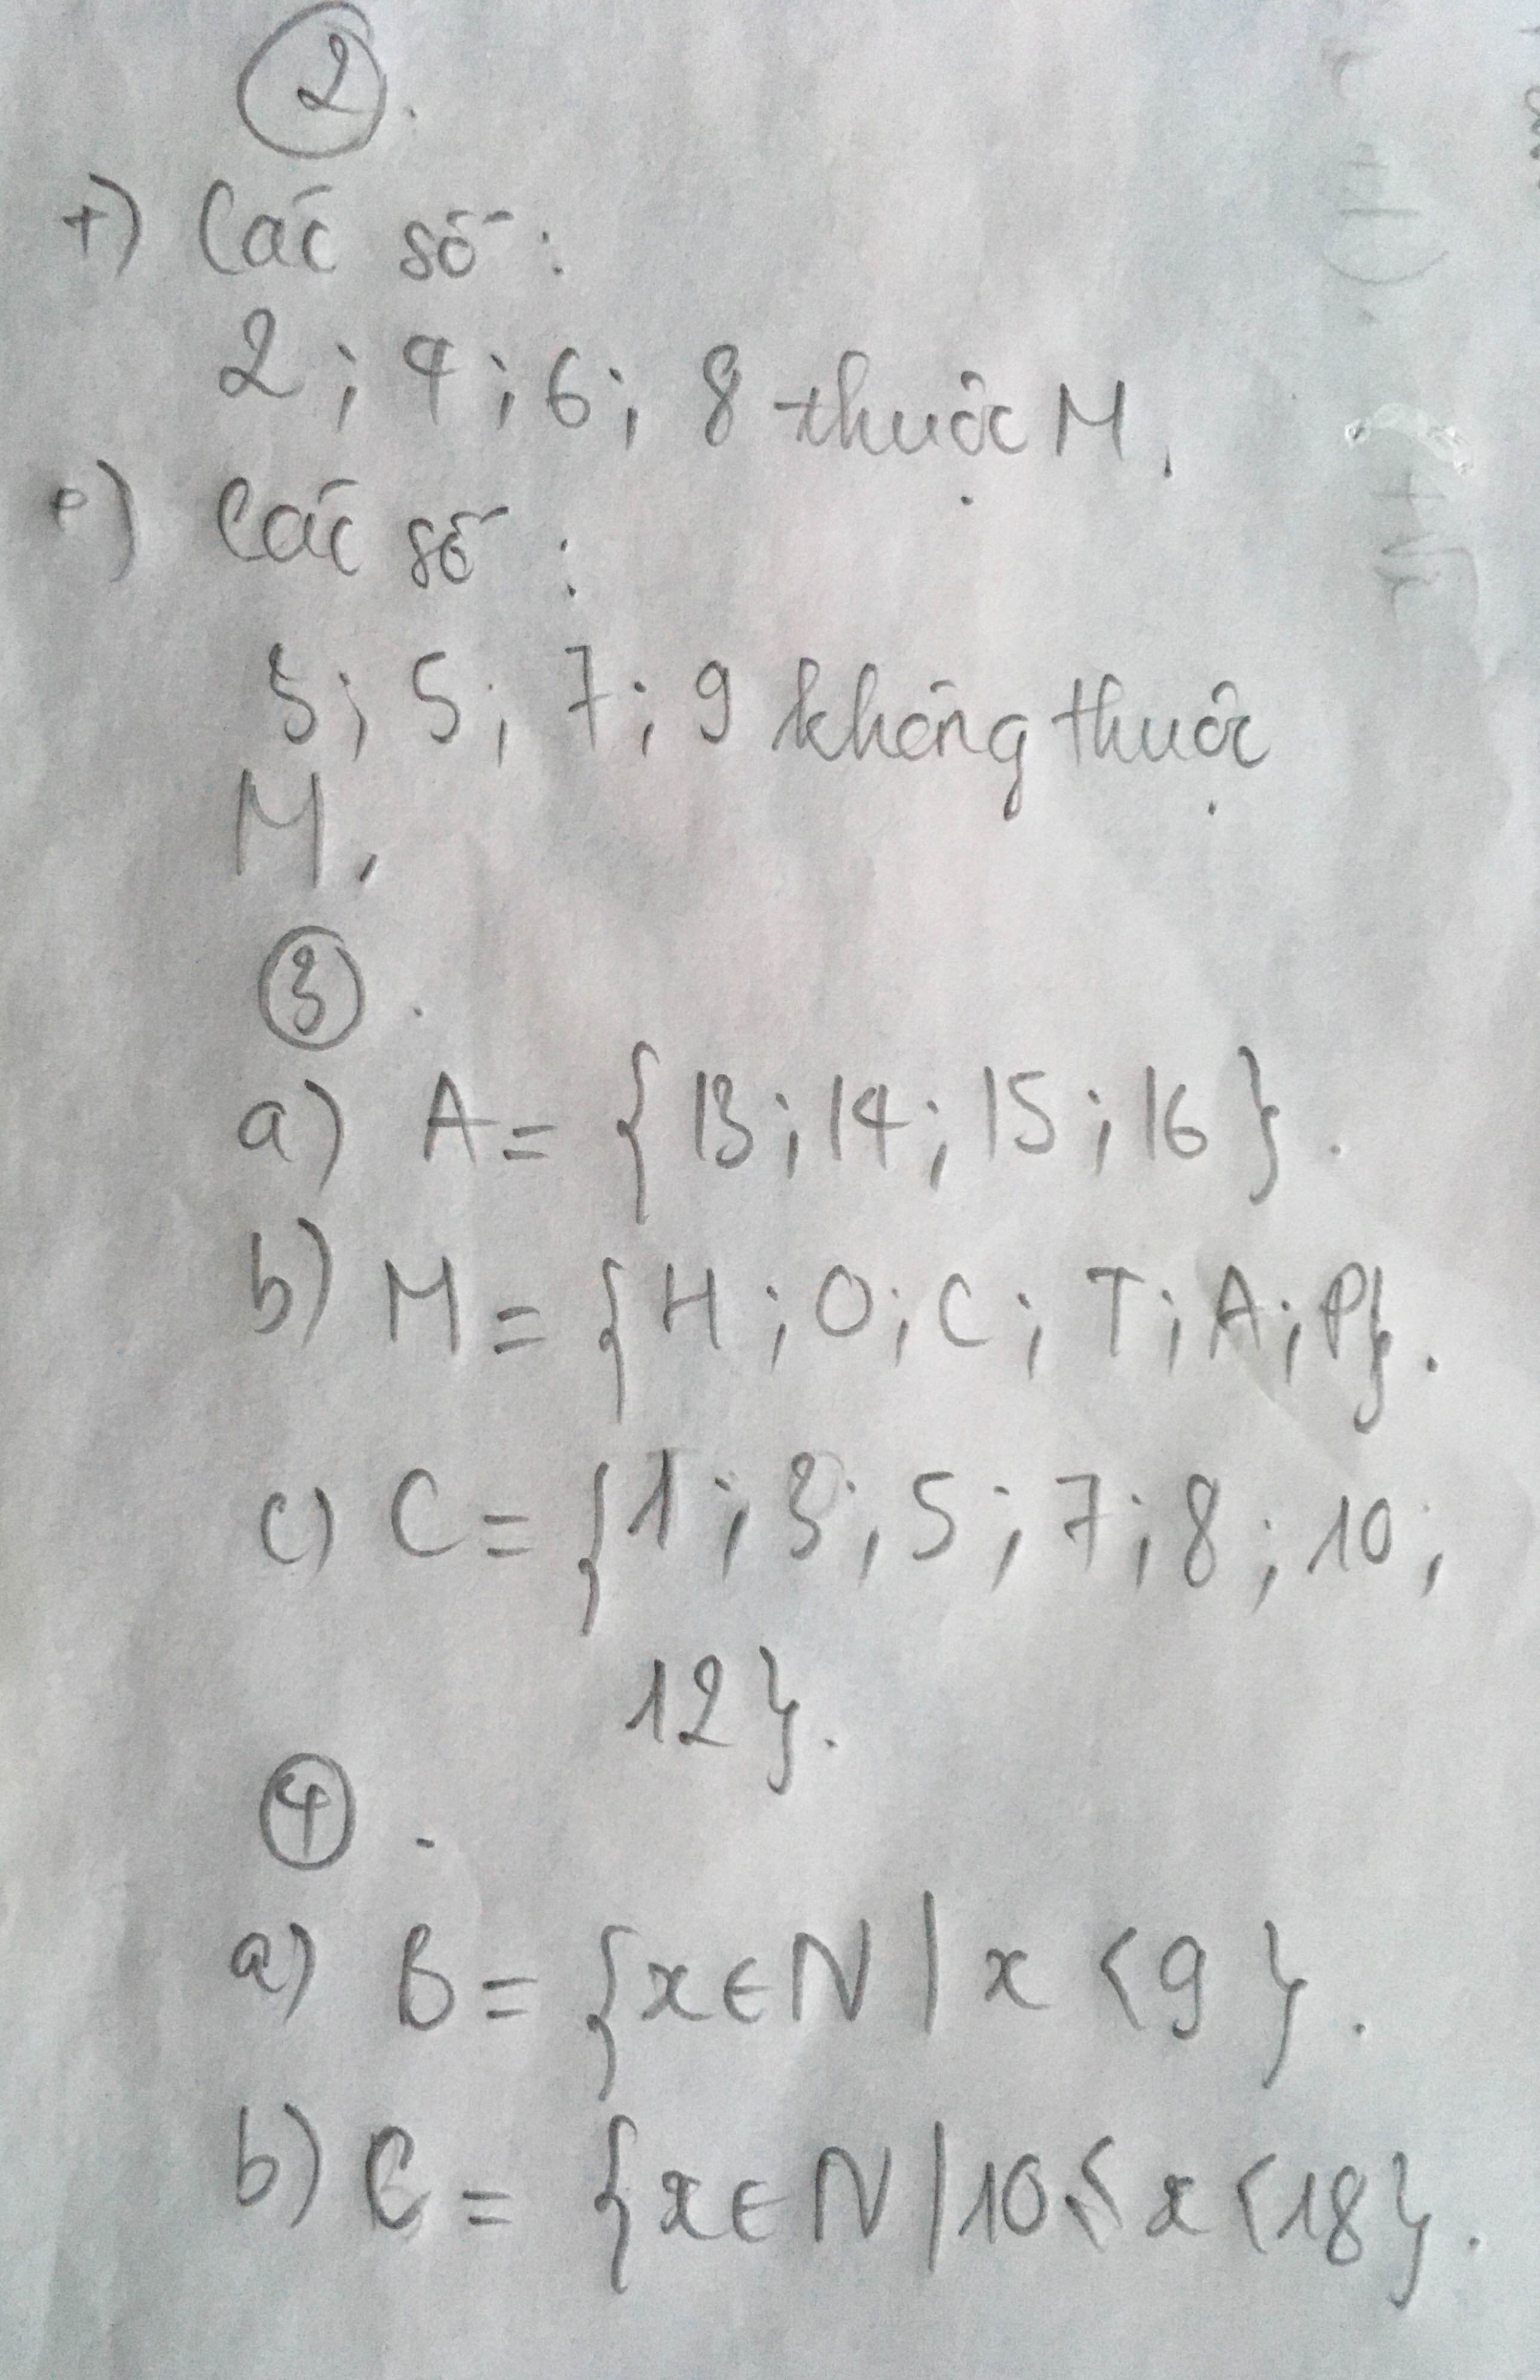 2.
+) Các số:
2; 4; 6; 8 thuộc M.
+) Các số:
3; 5; 7; 9 không thuộc
M.
3.
a) A = {13; 14; 15; 16}.
b) M = {H; O; C; T; A; P}.
c) C = {1; 3; 5; 7; 8; 10;
12}.
4.
a) B = {x ∈ N | x < 9}.
b) C = {x ∈ N | 10 ≤ x < 18}.